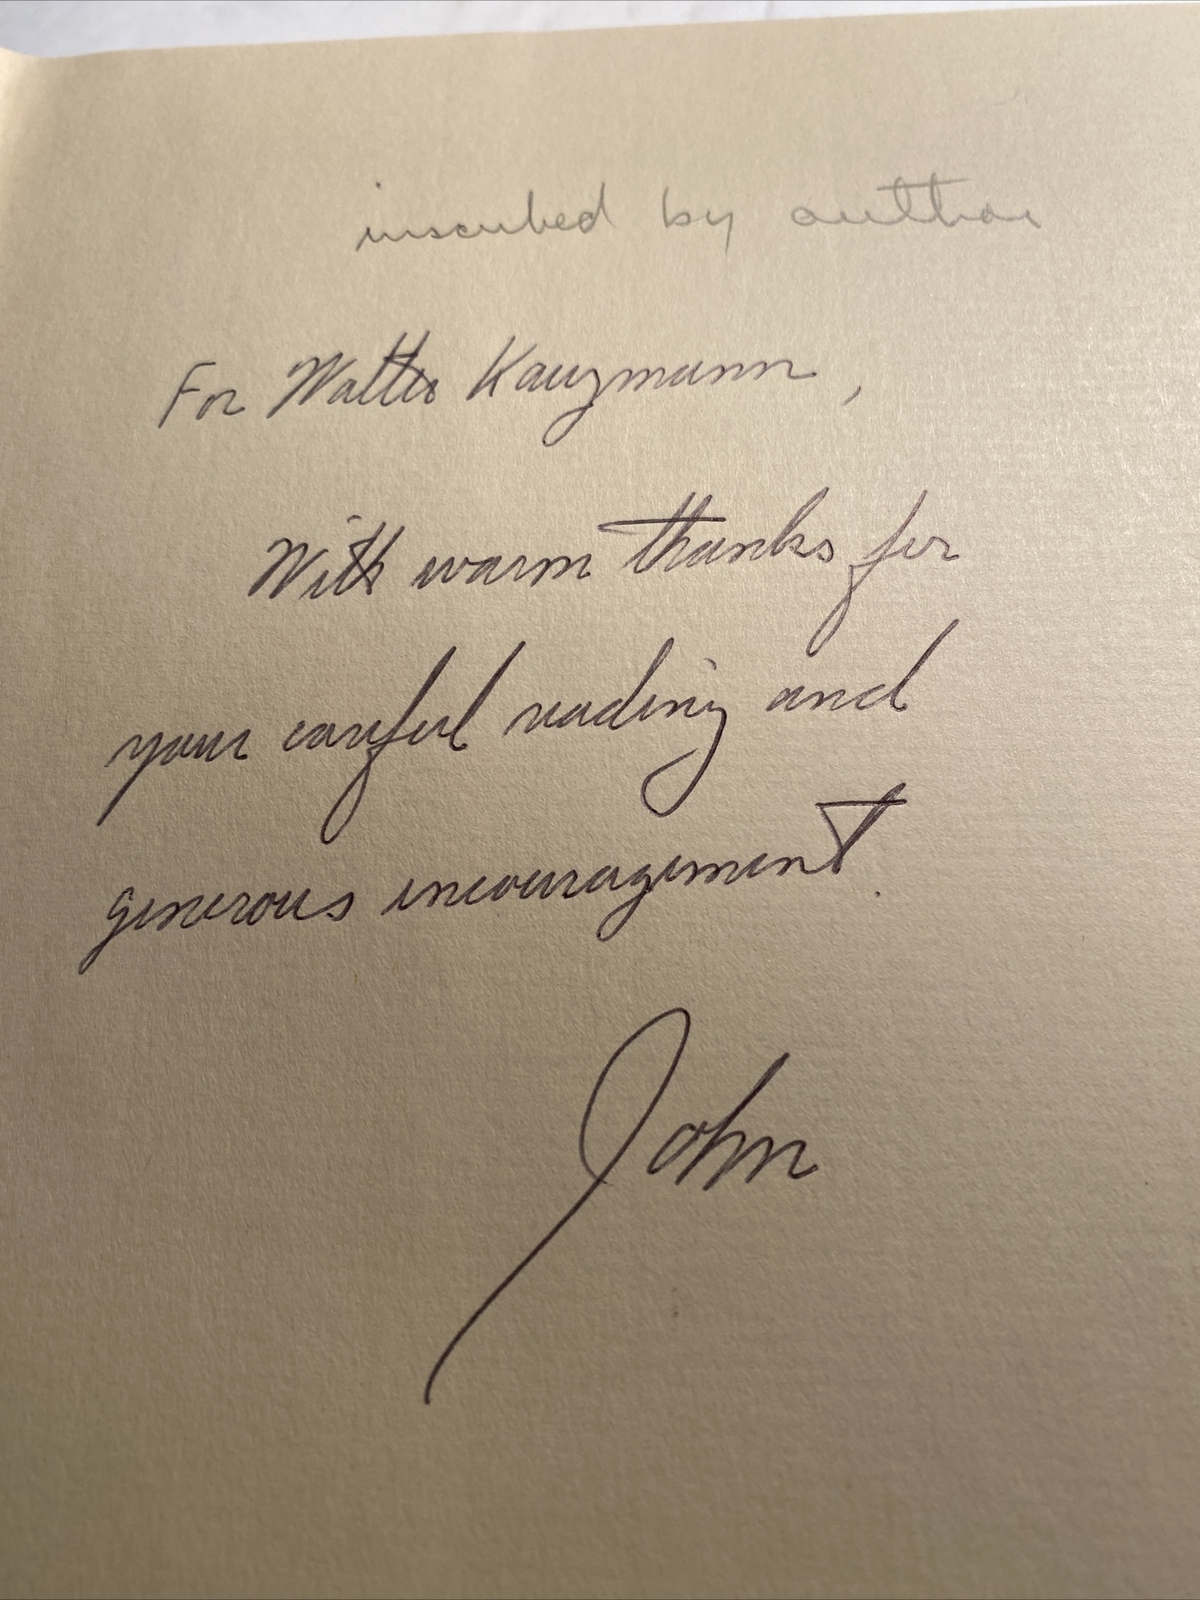 inscribed by author
For Walter Kauzmann,
With warm thanks for
your careful reading and
generous encouragement.
John